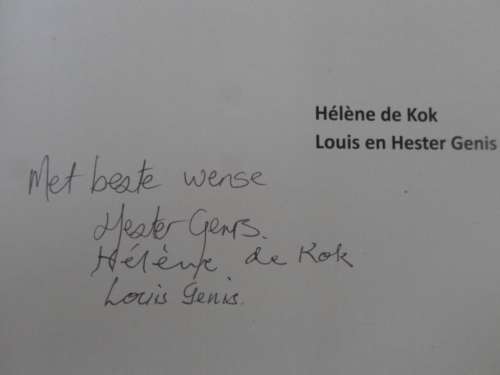 Hélène de Kok
Louis en Hester Genis
Met beste wense
Hester Genis.
Hélène de Kok
Louis Genis.